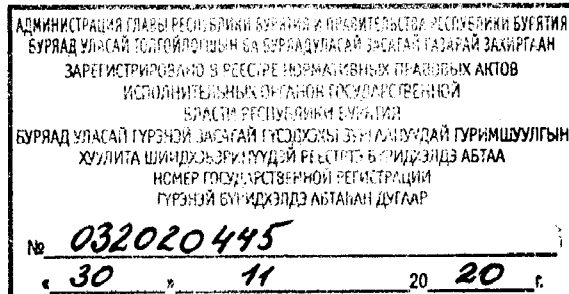 АДМИНИСТРАЦИЯ ГЛАВЫ РЕСПУБЛИКИ БУРЯТИЯ И ПРАВИТЕЛЬСТВА РЕСПУБЛИКИ БУРЯТИЯ
БУРЯАД УЛАСАЙ ТОЛГОЙЛОГШЫН БА БУРЯАД УЛАСАЙ ЗАСАГАЙ ГАЗАРАЙ ЗАХИРГААН
ЗАРЕГИСТРИРОВАНО В РЕЕСТРЕ НОРМАТИВНЫХ ПРАВОВЫХ АКТОВ
ИСПОЛНИТЕЛЬНЫХ ОРГАНОВ ГОСУДАРСТВЕННОЙ
ВЛАСТИ РЕСПУБЛИКИ БУРЯТИЯ
БУРЯАД УЛАСАЙ ГҮРЭНЭЙ ЗАСАГАЙ ГҮРИМШУУЛГЫН
ХУУЛИТА РЕЕСТРТЭ БҮРИДХЭЛДЭ АБТАА
НОМЕР ГОСУДАРСТВЕННОЙ РЕГИСТРАЦИИ
ГҮРЭНЭЙ БҮРИДХЭЛДЭ АБТАҺАН ДУГААР
№ 032020445
« 30 » 11 20 20 г.